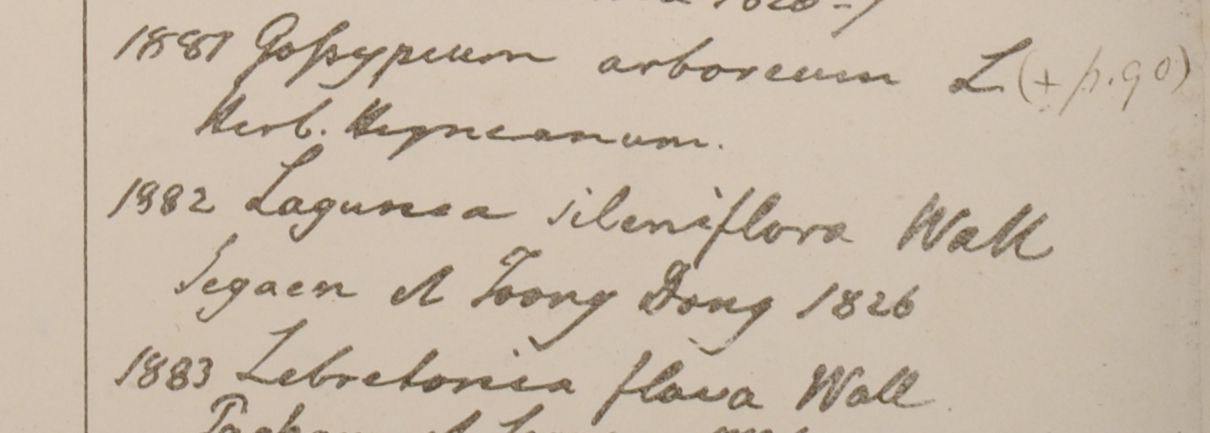 1881 Gossypium arboreum L (+ p. 90)
Herb. Heyneanum.
1882 Lagunea sileniflora Wall
Segaen et Toong Dong 1826
1883 Lebretonia flava Wall